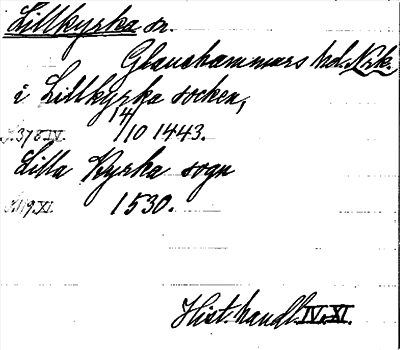 Lillkyrka sn.
Glanshammars hd. Nrk.
i Lillkyrka socken,
S.378.IV. 14/10 1443.
Lilla Kyrka sogn
S.119.XI. 1530.
Hist. handl. IV, XI.